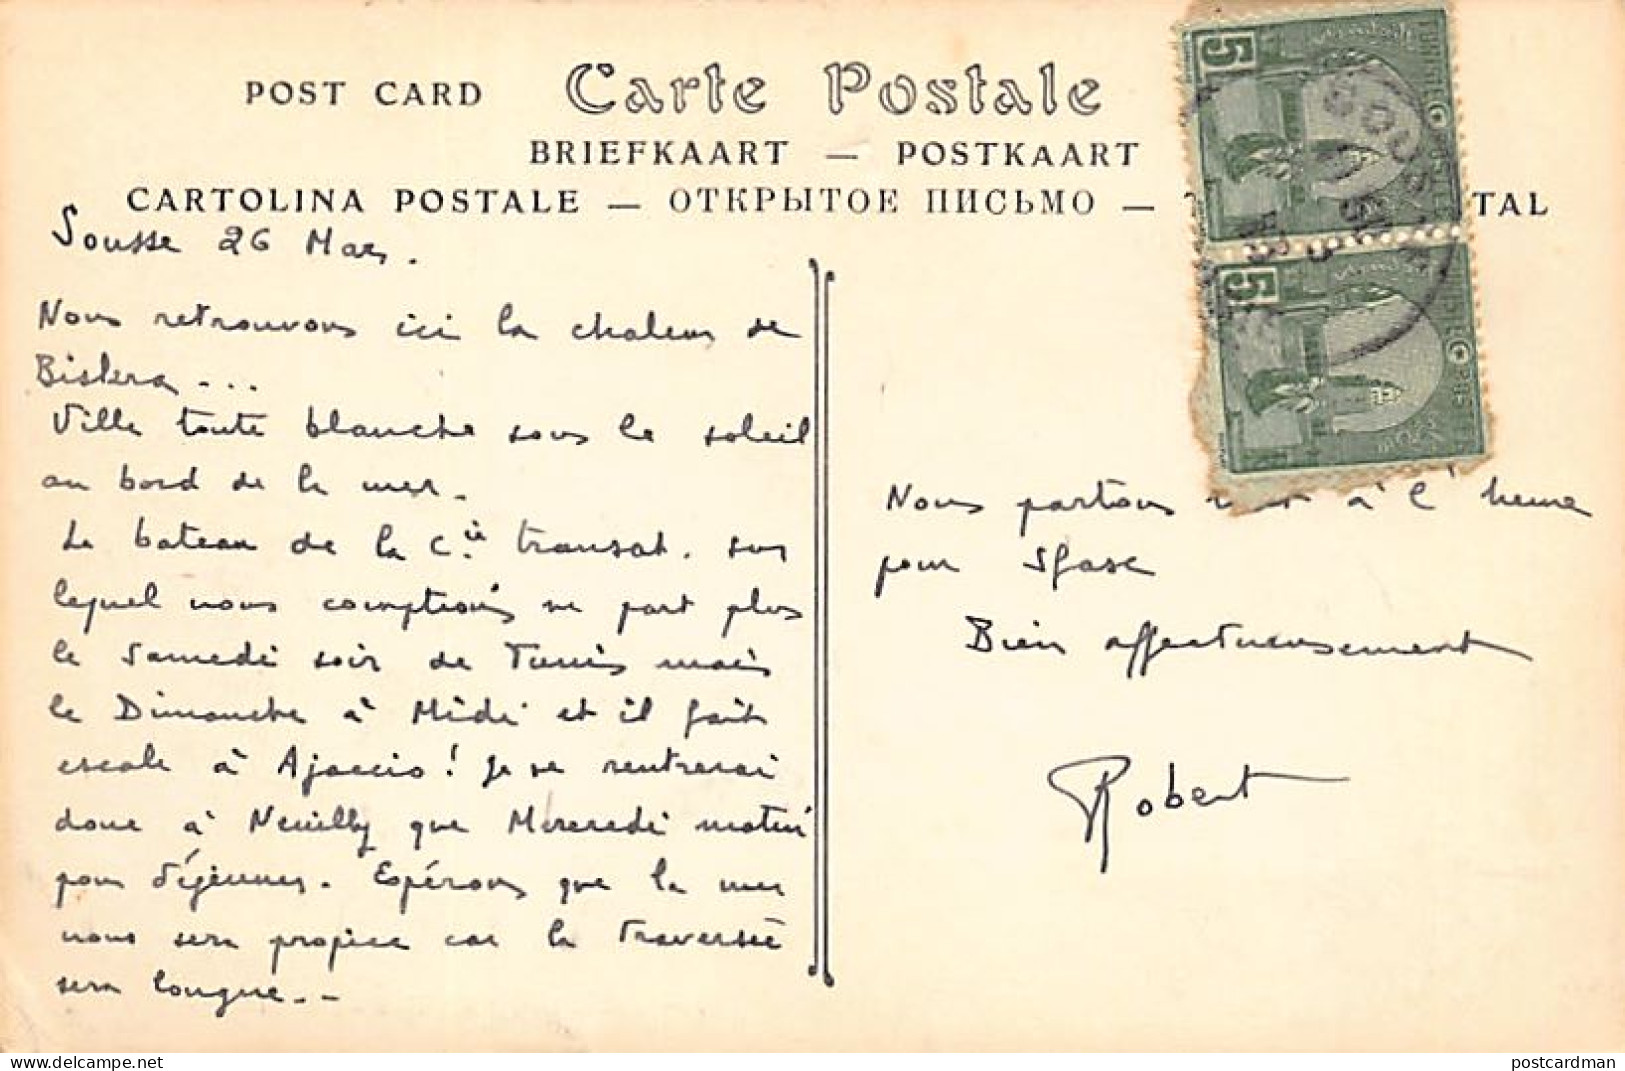 POST CARD Carte Postale
BRIEFKAART — POSTKAART
CARTOLINA POSTALE — ОТКРЫТОЕ ПИСЬМО — TAL
Sousse 26 Mars.
Nous retrouvons ici la chaleur de
Biskra ...
Ville toute blanche sous le soleil
au bord de la mer.
Le bateau de la Cie transat. sur
lequel nous comptions ne part plus
le Samedi soir de Tunis mais
le Dimanche à Midi et il fait
escale à Ajaccio! Je ne rentrerai
donc à Neuilly que Mercredi matin
pour déjeuner. Espérons que la mer
nous sera propice car la traversée
sera longue..
5
5
Nous partons à l'heure
pour Sfax
Bien affectueusement
Robert
postcardman
www.delcampe.net